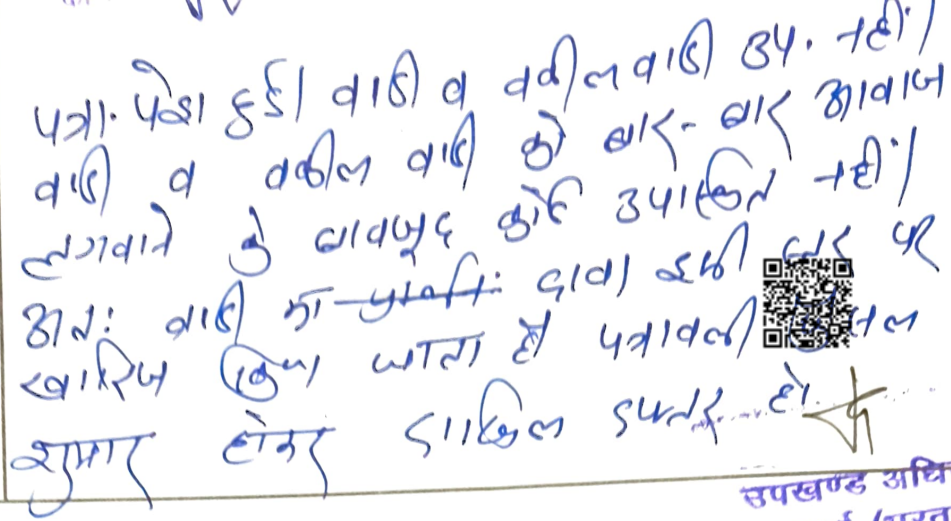 पत्रा. पेश हुई। वादी व वकील वादी उप. नहीं।
वादी व वकील वादी को बार-बार आवाज
लगवाने के बावजूद कोई उपस्थित नहीं।
अतः वादी का दावा इसी पर
खारिज किया जाता है पत्रावली
शुमार होकर दाखिल दफ्तर हो।
उपखण्ड अधि